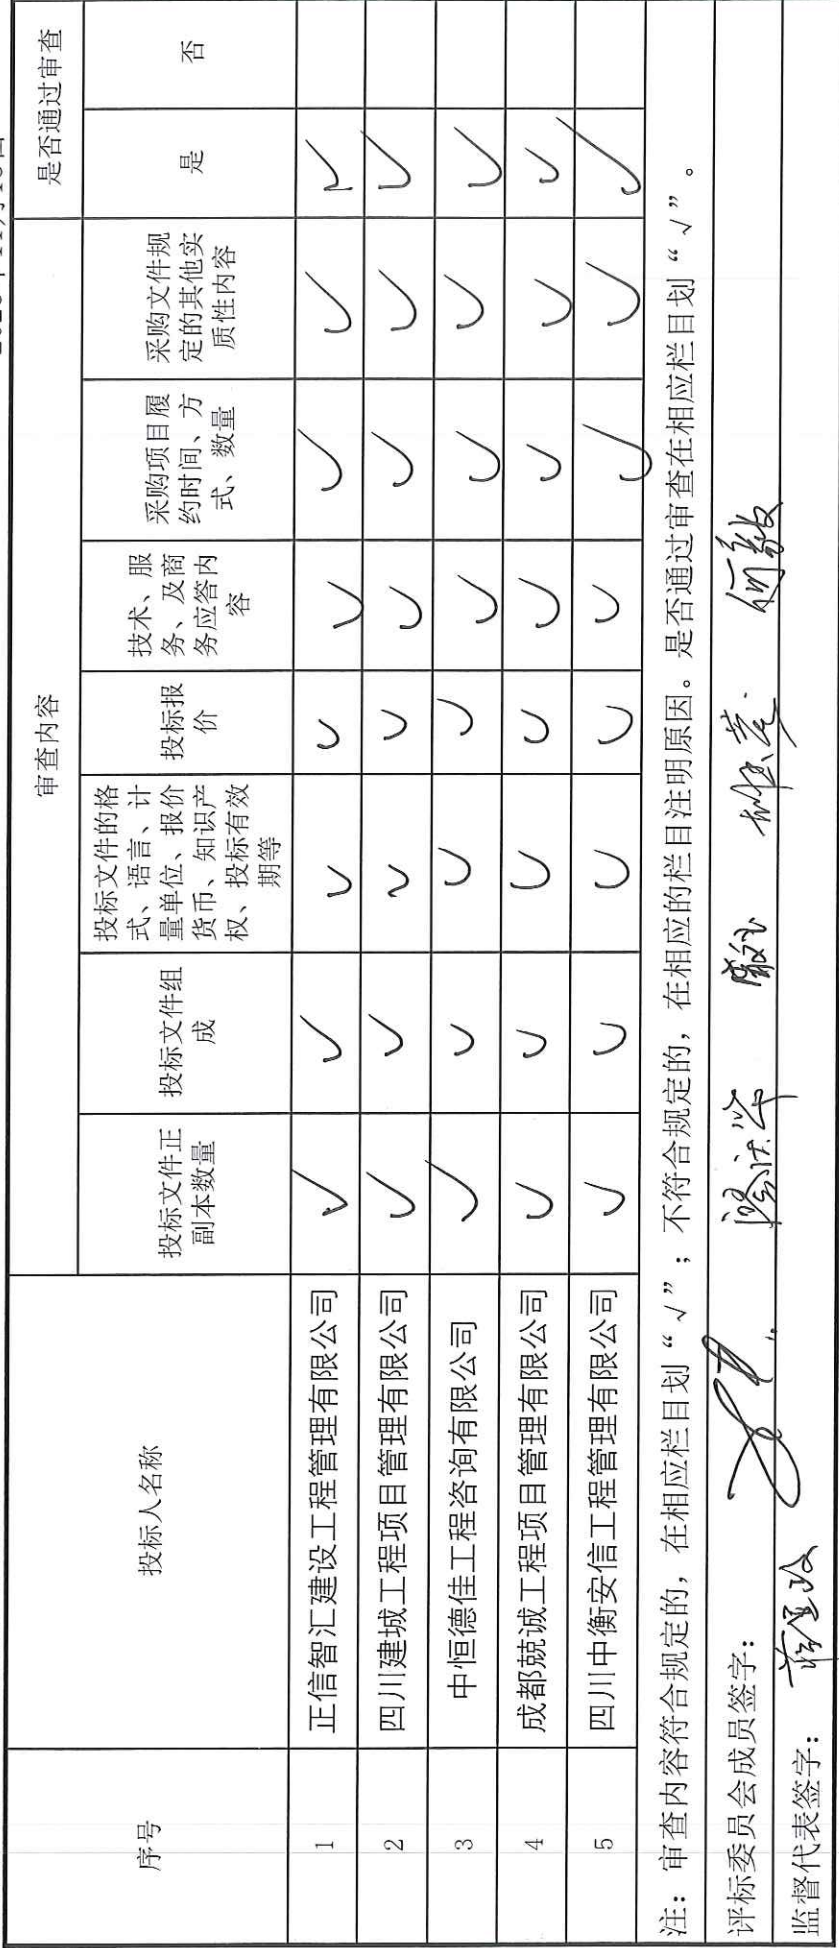 序号 投标人名称 审查内容 是否通过审查
投标文件正副本数量 投标文件组成 投标文件的格式、语言、计量单位、报价货币、知识产权、投标有效期等 投标报价 技术、服务、及商务应答内容 采购项目履约时间、方式、数量 采购文件规定的其他实质性内容 是 否
1 正信智汇建设工程管理有限公司 √ √ √ √ √ √ √ √
2 四川建城工程项目管理有限公司 √ √ √ √ √ √ √ √
3 中恒德佳工程咨询有限公司 √ √ √ √ √ √ √ √
4 成都兢诚工程项目管理有限公司 √ √ √ √ √ √ √ √
5 四川中衡安信工程管理有限公司 √ √ √ √ √ √ √ √
注：审查内容符合规定的，在相应栏目划“√”；不符合规定的，在相应的栏目注明原因。是否通过审查在相应栏目划“√”。
评标委员会成员签字：
监督代表签字：